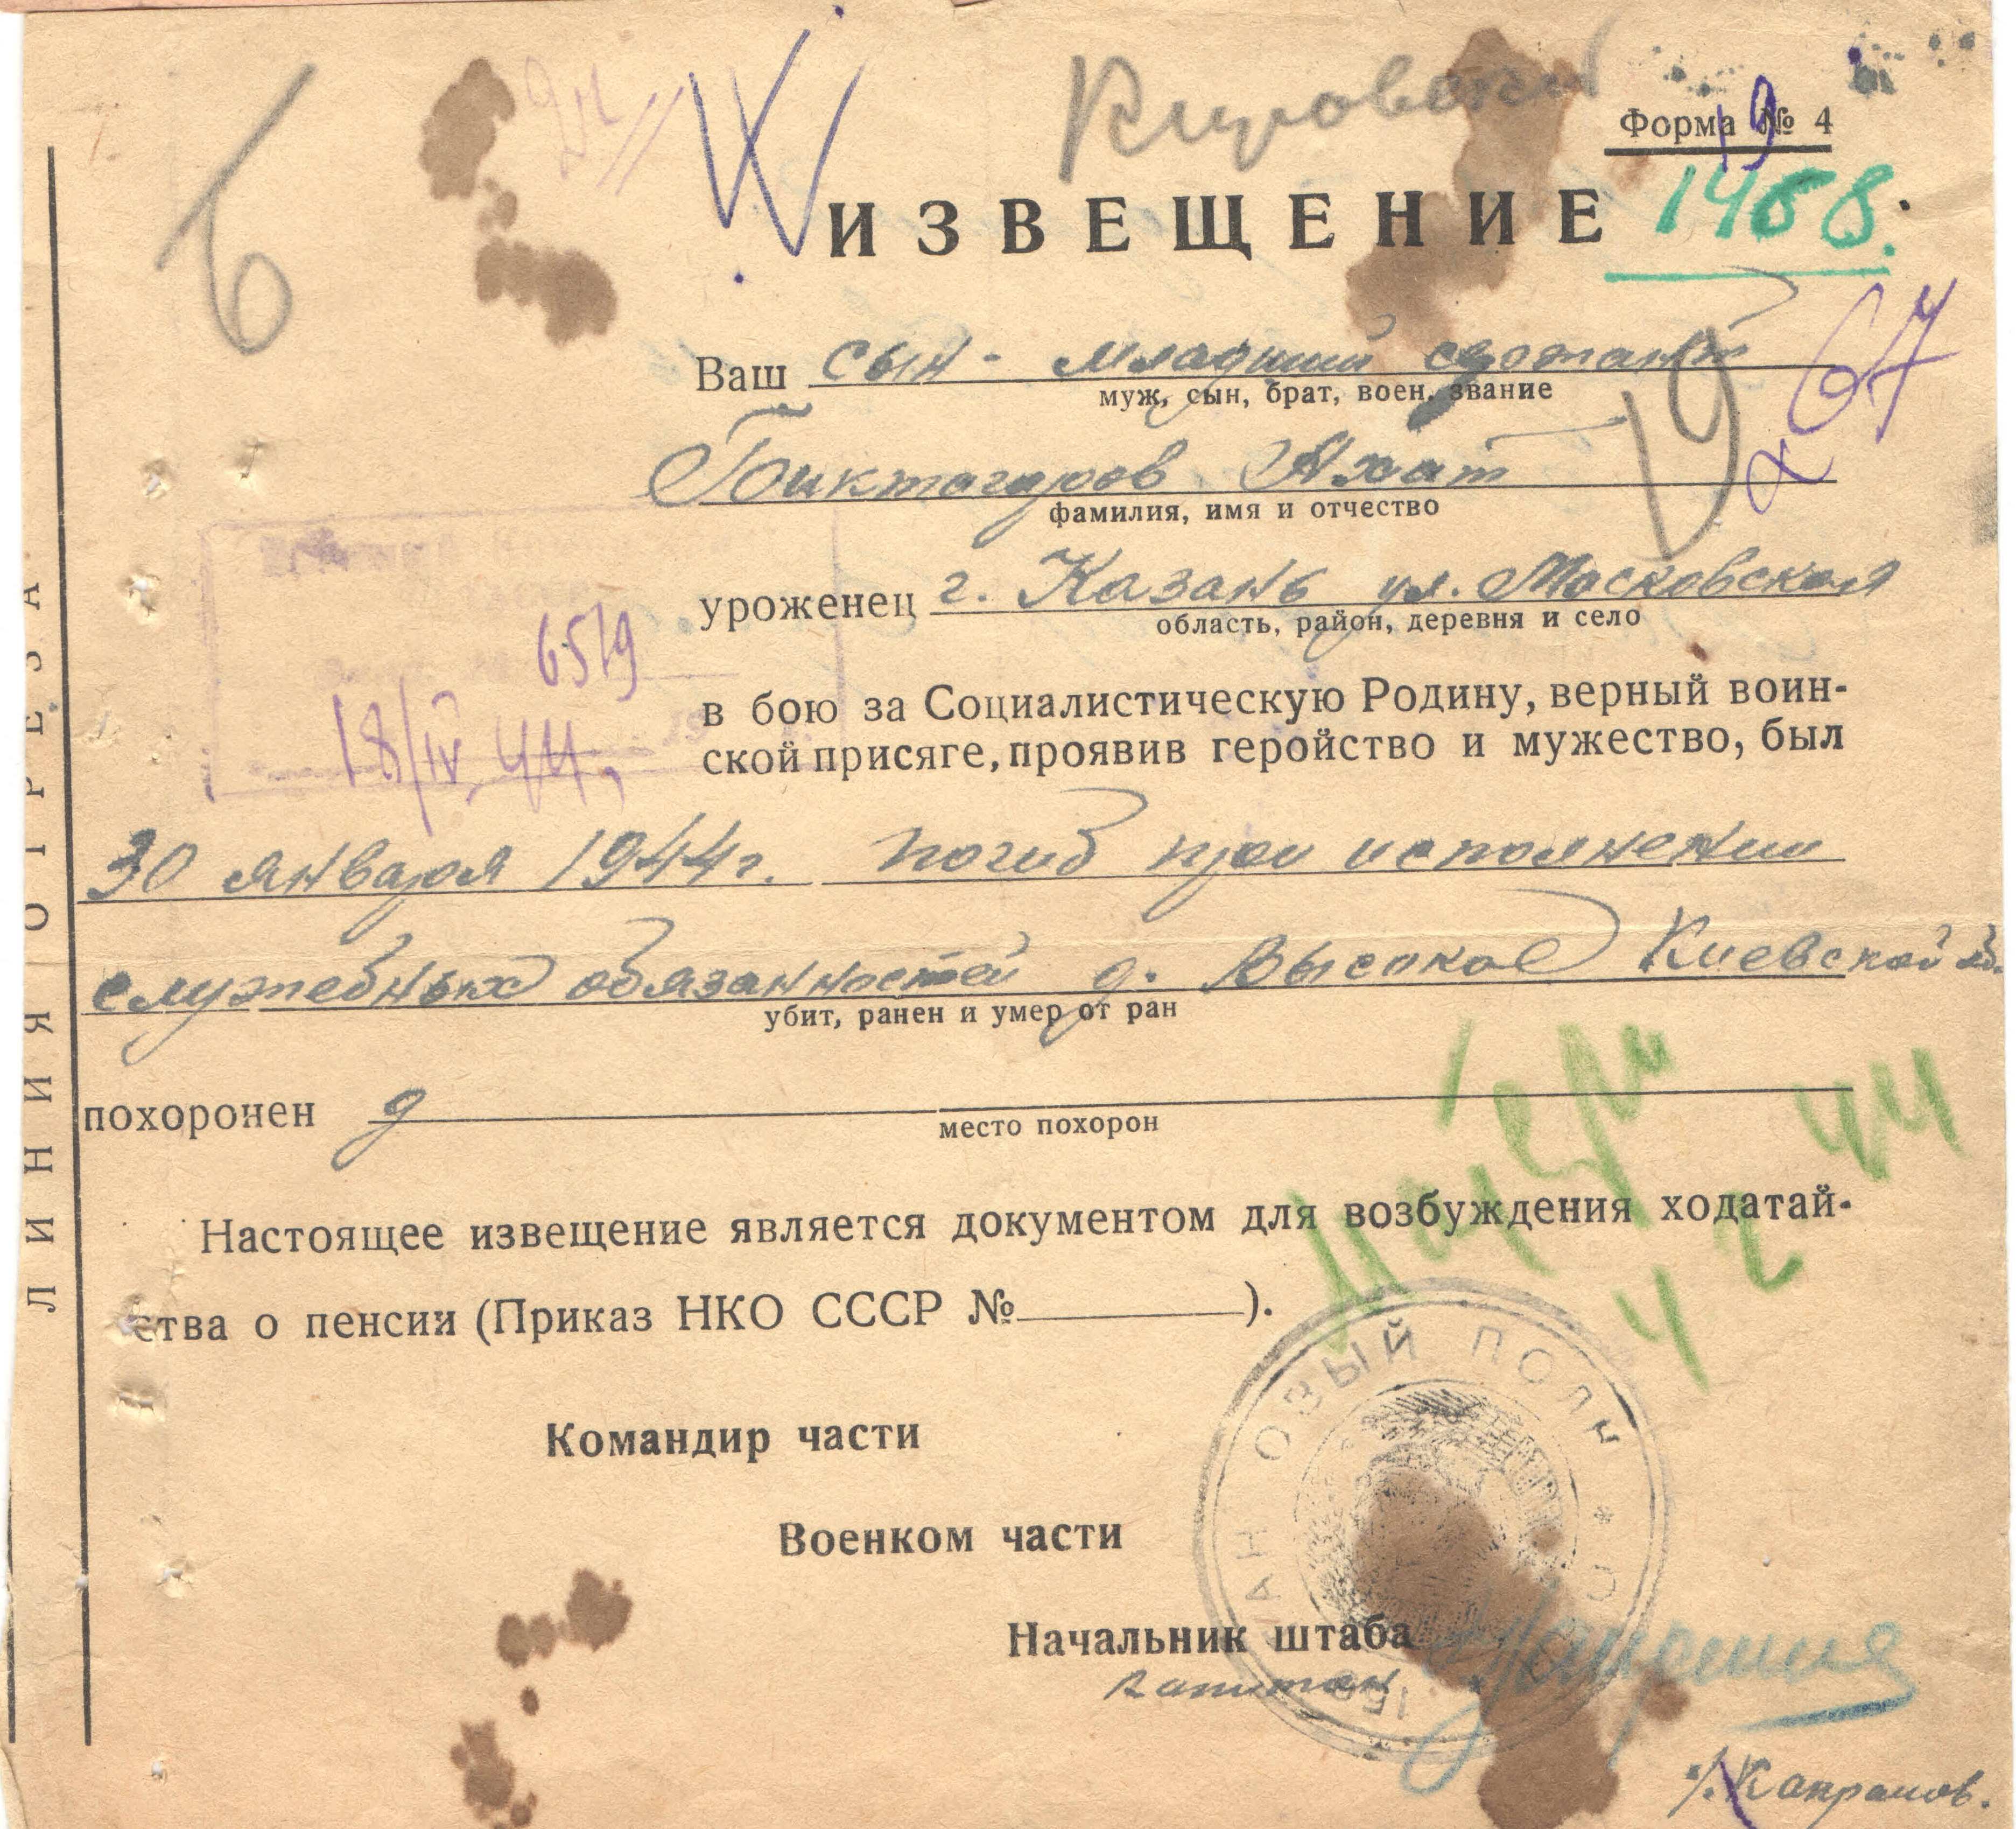 Форма № 4
19
ИЗВЕЩЕНИЕ 1468.
67
Ваш сын - младший сержант
муж, сын, брат, воен. звание
Биктагиров Ахат
фамилия, имя и отчество
уроженец г. Казань ул. Московская
область, район, деревня и село
6519
18/IV 44.
в бою за Социалистическую Родину, верный воин-
ской присяге, проявив геройство и мужество, был
30 января 1944г. погиб при исполнении
служебных обязанностей д. Высокое Киевской об.
убит, ранен и умер от ран
похоронен
место похорон
Настоящее извещение является документом для возбуждения ходатай-
ства о пенсии (Приказ НКО СССР № ).
Командир части
Военком части
Начальник штаба
капитан
ЛИНИЯ ОТРЕЗА